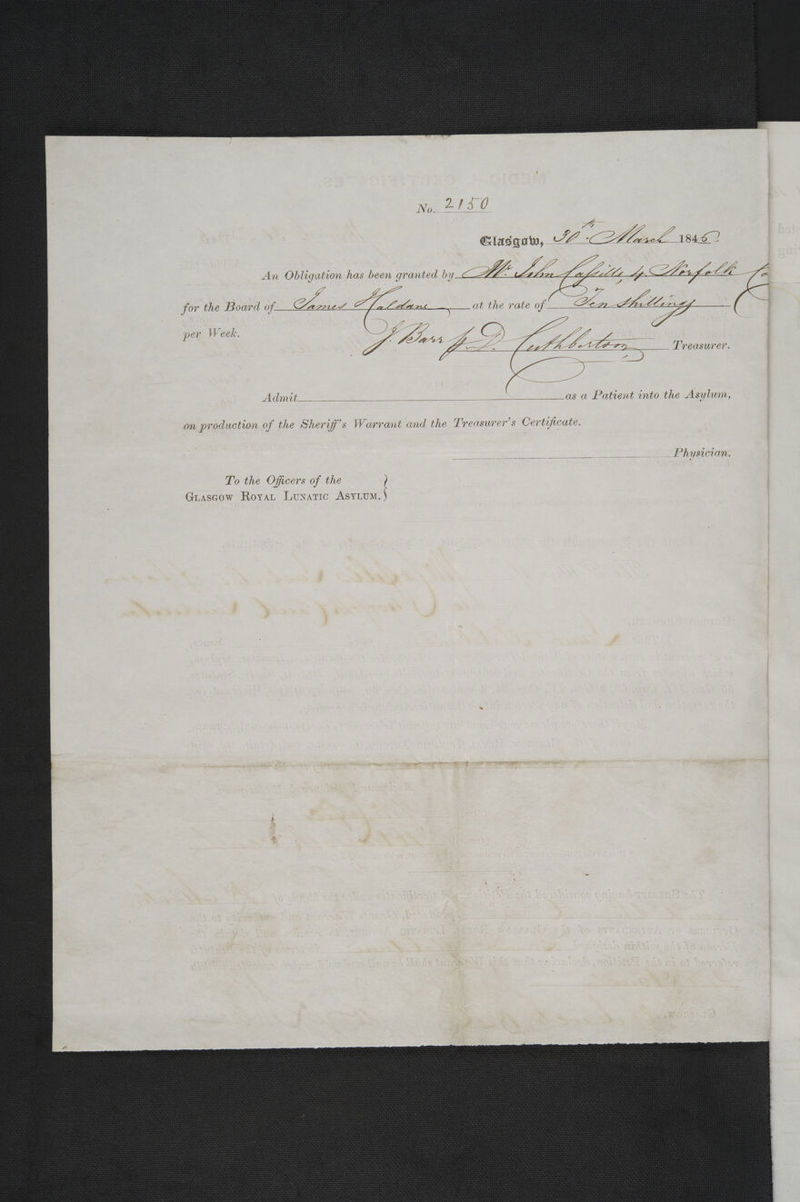 No. 2150
Glasgow, 30th March 1846
An Obligation has been granted by Mr. John Cassills, 4. Norfolk
for the Board of James Haldane at the rate of Ten Shillings
per Week.
J. Barr p D. Cuthbertson Treasurer.
Admit as a Patient into the Asylum,
on production of the Sheriff's Warrant and the Treasurer's Certificate.
Physician.
To the Officers of the
GLASGOW ROYAL LUNATIC ASYLUM.